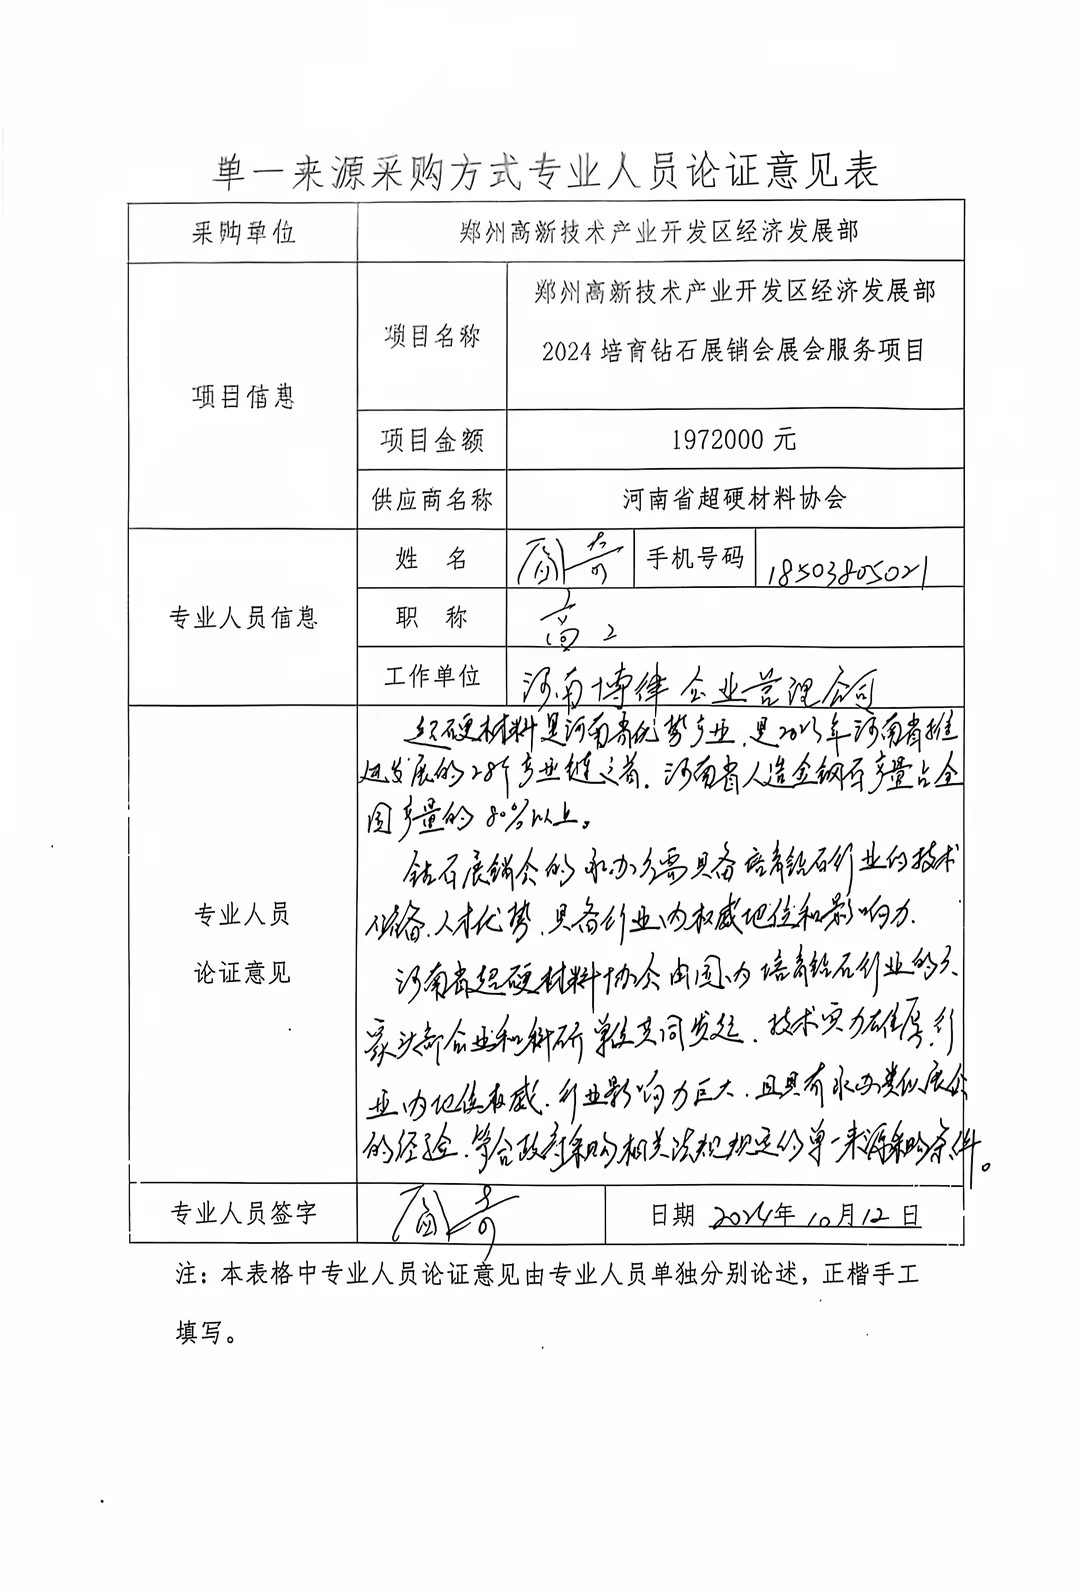 单一来源采购方式专业人员论证意见表
采购单位 郑州高新技术产业开发区经济发展部
项目信息
项目名称
郑州高新技术产业开发区经济发展部
2024 培育钻石展销会展会服务项目
项目金额 1972000 元
供应商名称 河南省超硬材料协会
专业人员信息
姓 名 手机号码 18503805021
职 称 高工
工作单位 河南博律企业管理公司
专业人员
论证意见
超硬材料是河南省优势产业,是2023年河南省推
进发展的28个产业链之首,河南省人造金钢石产量占全
国产量的80%以上。
钻石展销会的承办方需具备培育钻石行业的技术
储备、人才优势,具备行业内权威地位和影响力.
河南省超硬材料协会由国内培育钻石行业的多
家头部企业和科研单位共同发起,技术实力雄厚,行
业内地位权威,行业影响力巨大,且具有承办类似展会
的经验,符合政府采购相关法规规定的单一来源采购条件。
专业人员签字 日期 2024年10月12日
注：本表格中专业人员论证意见由专业人员单独分别论述，正楷手工
填写。